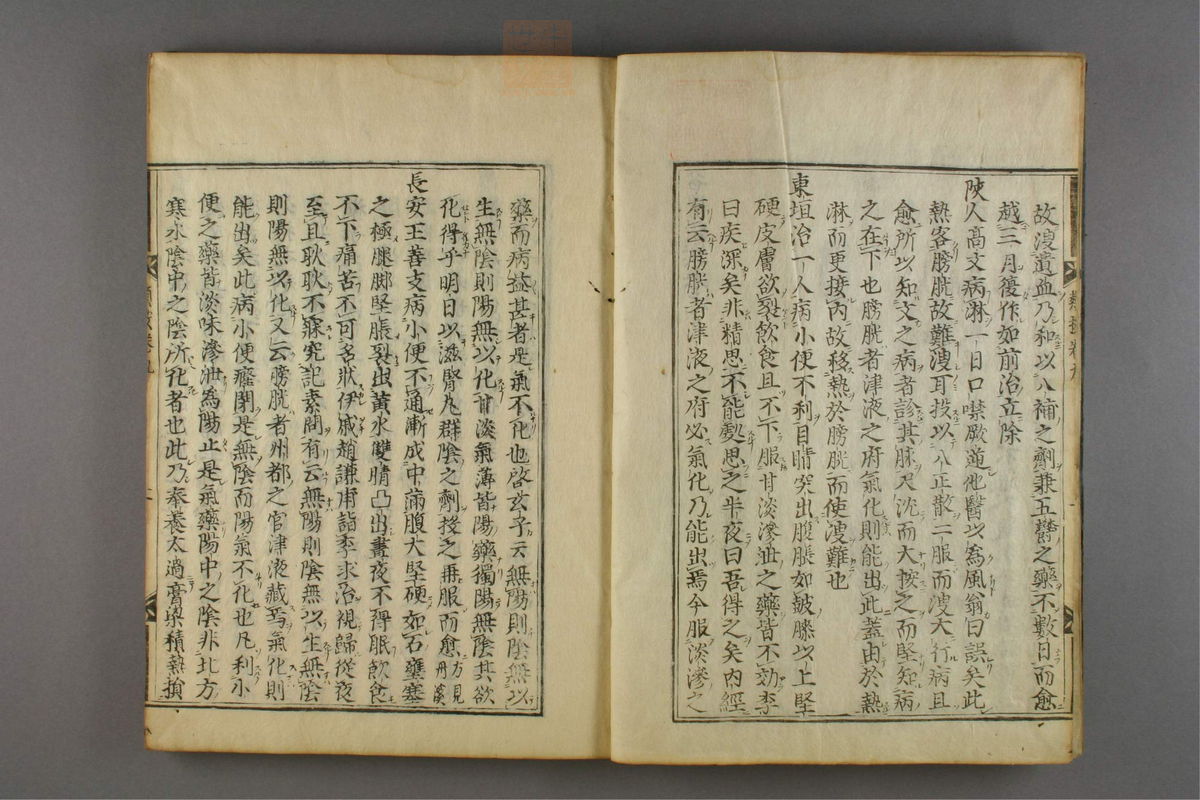 故溲遺血乃和以八補之劑兼五鬱之藥不數日而愈
越三月復作如前治立除
陝人高文病淋一日口噤厥逆他醫以為風翁曰誤矣此
熱客膀胱故難溲耳投以八正散二服而溲大行病且
愈所以知文之病者診其脉尺沈而大按之而堅知病
之在下也膀胱者津液之府氣化則能出此蓋由於熱
淋而更接內故移熱於膀胱而使溲難也
東垣治一人病小便不利目睛突出腹脹如皷膝以上堅
硬皮膚欲裂飲食且不下服甘淡滲泄之藥皆不効李
曰疾深矣非精思不能處思之半夜曰吾得之矣內經
有云膀胱者津液之府必氣化乃能出焉今服淡滲之
藥而病益甚者是氣不化也啓玄子云無陽則陰無以
生無陰則陽無以化甘淡氣薄皆陽藥獨陽無陰其欲
化得乎明日以滋腎丸群陰之劑投之再服而愈方見丹溪
長安王善支病小便不通漸成中滿腹大堅硬如石壅塞
之極腿脚堅脹裂出黃水雙睛凸出晝夜不得眠飲食
不下痛苦不可名狀伊戚趙謙甫詣李求治視歸從夜
至且耿耿不寐究記素問有云無陽則陰無以生無陰
則陽無以化又云膀胱者州都之官津液藏焉氣化則
能出矣此病小便癃閉是無陰而陽氣不化也凡利小
便之藥皆淡味滲泄為陽止是氣藥陽中之陰非北方
寒水陰中之陰所化者也此乃奉養太過膏粱積熱損